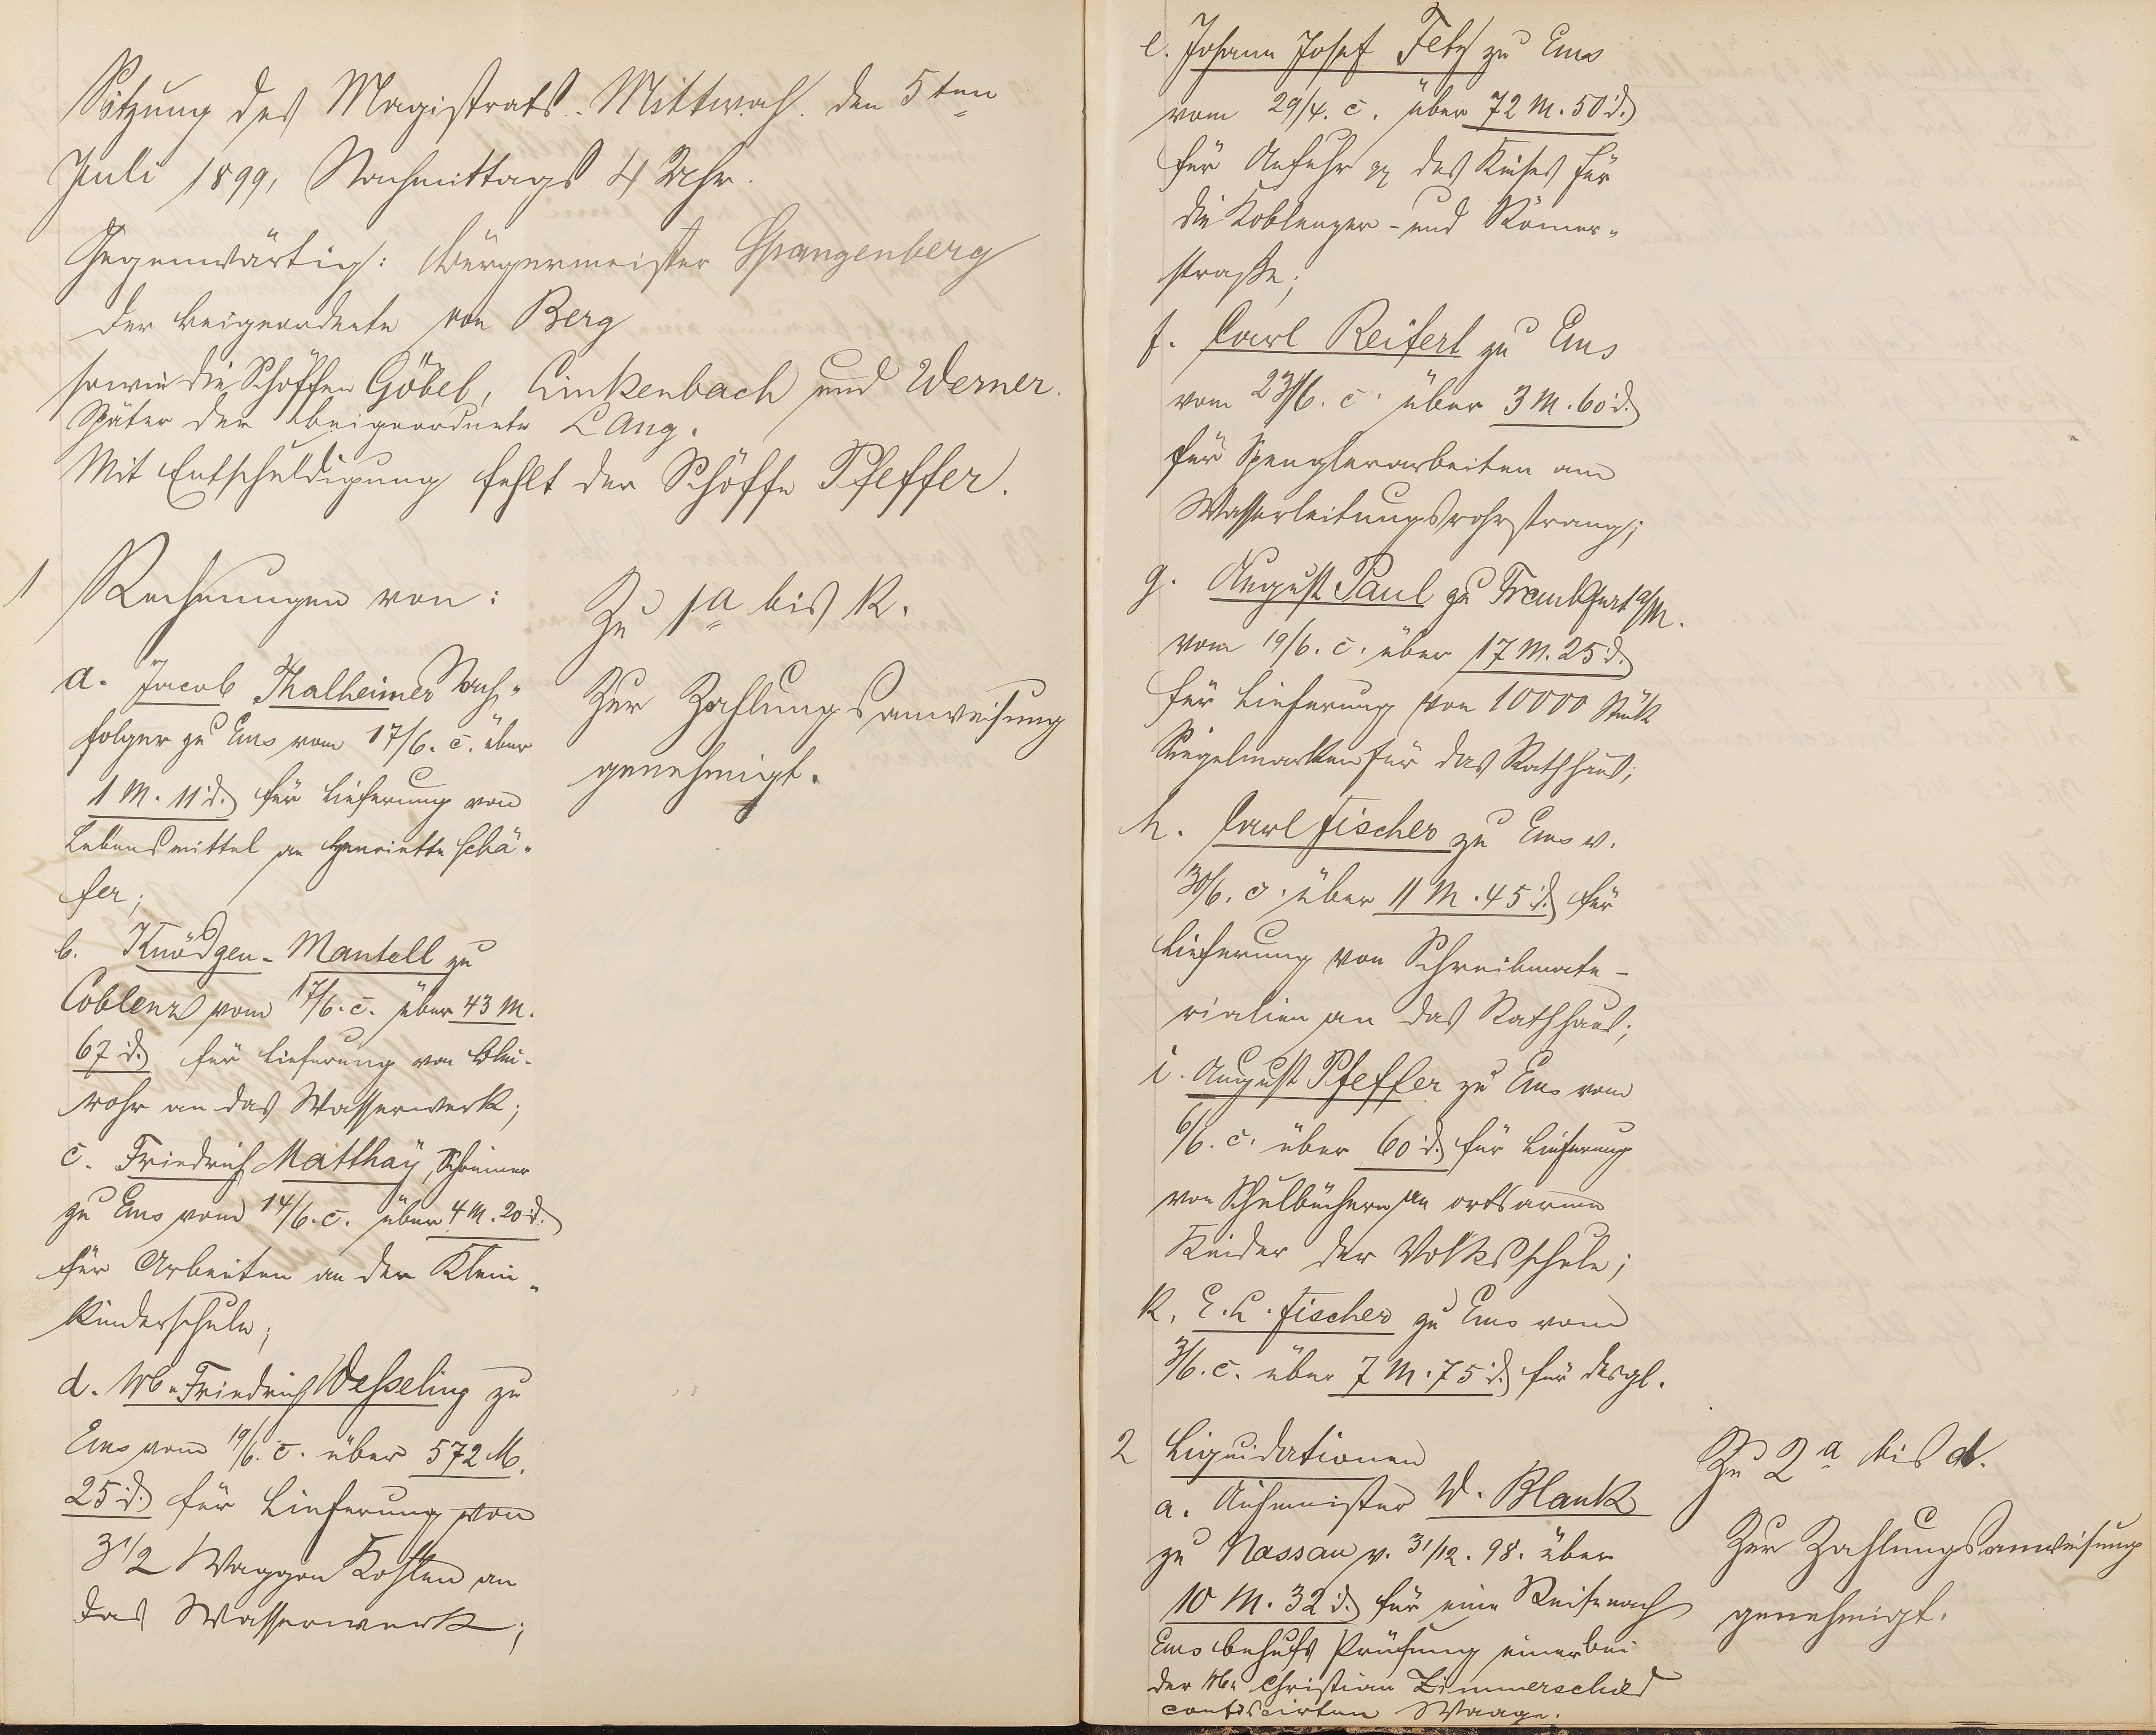 Sitzung des Magistrats. Mittwoch. den 5ten
Juli 1899, Nachmittags 4 Uhr.
Gegenwärtig: Bürgermeister Spangenberg
der Beigeordnete von Berg
sowie die Schöffen Göbel, Linkenbach und Werner.
Später der Beigeordnete Lang.
Mit Entschuldigung fehlt der Schöffe Pfeffer.
1 Rechnungen von:
a. Jacob Thalheimer Nach-
folger zu Ems vom 17/6. c. über
1 M. 11 d. für Lieferung von
Lebensmittel an Henriette Schä-
fer;
b. Knödgen-Mantell zu
Coblenz vom 17/6. c. über 43 M.
67 d. für Lieferung von Blei-
rohr an das Wasserwerk;
c. Friedrich Matthäy, Schreiner
zu Ems vom 14/6. c. über 4 M. 20 d.
für Arbeiten an der Klein-
kinderschule;
d. Wb. Friedrich Wesseling zu
Ems vom 19/6. c. über 572 M.
25 d. für Lieferung von
3 1/2 Waggon Kohlen an
das Wasserwerk;
Zu 1a bis k.
Zur Zahlungsanweisung
genehmigt.
e. Johann Josef Fetz zu Ems
vom 29/4. c. über 72 M. 50 d.
für Anfuhr pp des Kieses für
die Koblenzer- und Römer-
straße;
f. Carl Reifert zu Ems
vom 23/6. c. über 3 M. 60 d.
für Spenglerarbeiten am
Wasserleitungsrohrstrang;
g. August Paul zu Frankfurt a/M.
vom 19/6. c. über 17 M. 25 d.
für Lieferung von 10000 Stück
Siegelmarken für das Rathhaus;
h. Carl Fischer zu Ems v.
30/6. c. über 11 M. 45 d. für
Lieferung von Schreibmate-
rialien an das Rathhaus;
i. August Pfeffer zu Ems vom
6/6. c. über 60 d. für Lieferung
von Schulbüchern an ortsarme
Kinder der Volksschule;
k. E. L. Fischer zu Ems vom
3/6. c. über 7 M. 75 d. für desgl.
2 Liquidationen
a. Aichmeister W. Blank
zu Nassau v. 31/12. 98. über
10 M. 32 d. für eine Reise nach
Ems behufs Prüfung einer bei
der Wb. Christian Zimmerschied
confiscirten Waage.
Zu 2a bis d.
Zur Zahlungsanweisung
genehmigt.